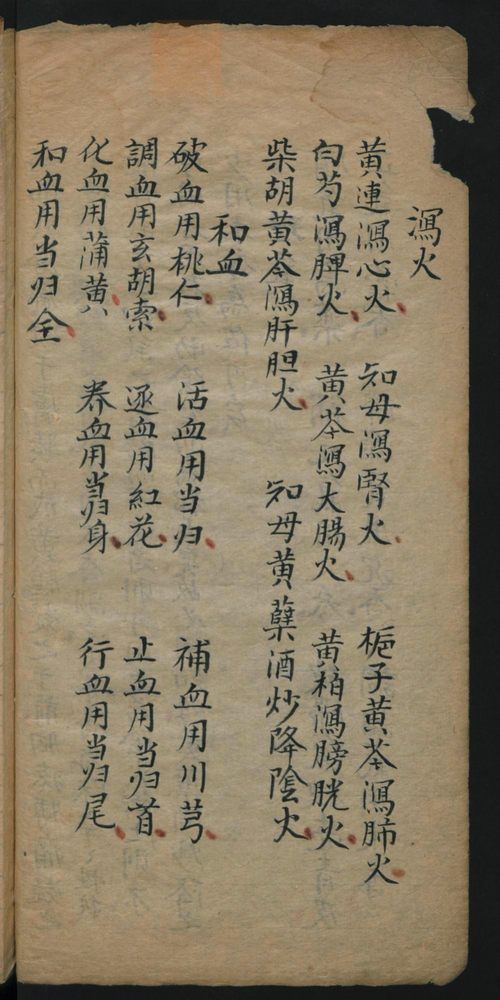 瀉火
黄連瀉心火 知母瀉腎火 梔子黄芩瀉肺火
白芍瀉脾火 黄芩瀉大腸火 黄栢瀉膀胱火
柴胡黄芩瀉肝胆火 知母黄蘗酒炒降陰火
和血
破血用桃仁 活血用当归 補血用川芎
調血用玄胡索 逐血用紅花 止血用当归首
化血用蒲黄 养血用当归身 行血用当归尾
和血用当归全